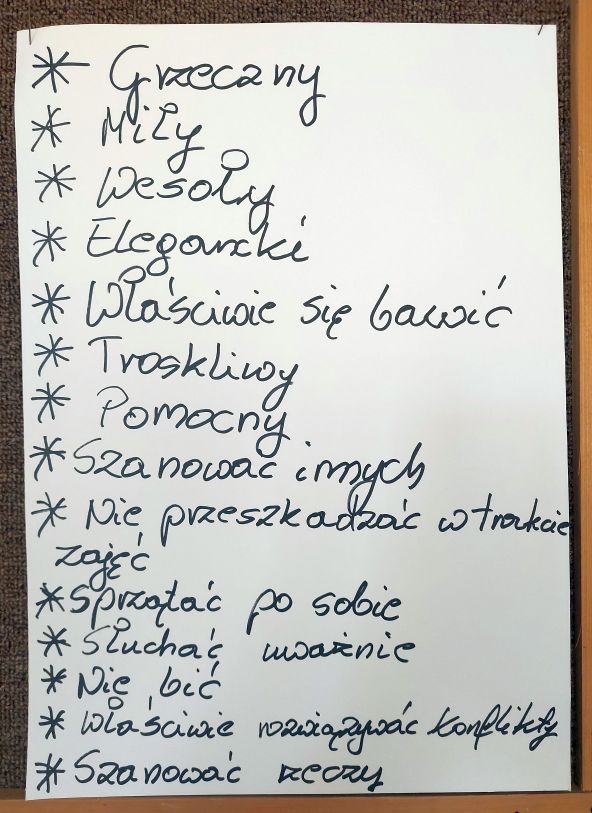 * Grzeczny
* Miły
* Wesoły
* Elegancki
* Właściwie się bawić
* Troskliwy
* Pomocny
* Szanować innych
* Nie przeszkadzać w trakcie
zajęć
* Sprzątać po sobie
* Słuchać uważnie
* Nie bić
* Właściwie rozwiązywać konflikty
* Szanować rzeczy